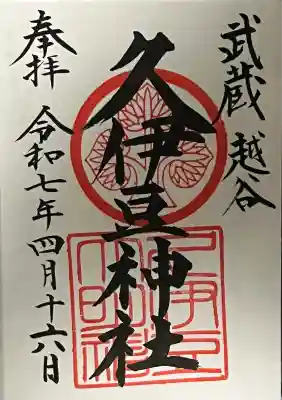 武蔵 越谷
久伊豆神社
奉拝
令和七年四月十六日